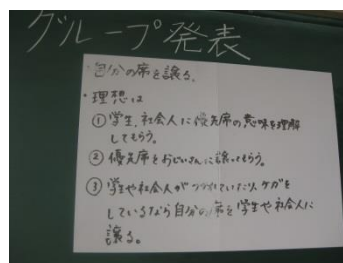 グループ発表
・自分の席を譲る。
・理想は
①学生、社会人に優先席の意味を理解
してもらう。
②優先席をおじいさんに譲ってもらう。
③学生や社会人がつかれていたり、ケガを
しているなら自分の席を学生や社会人に
譲る。